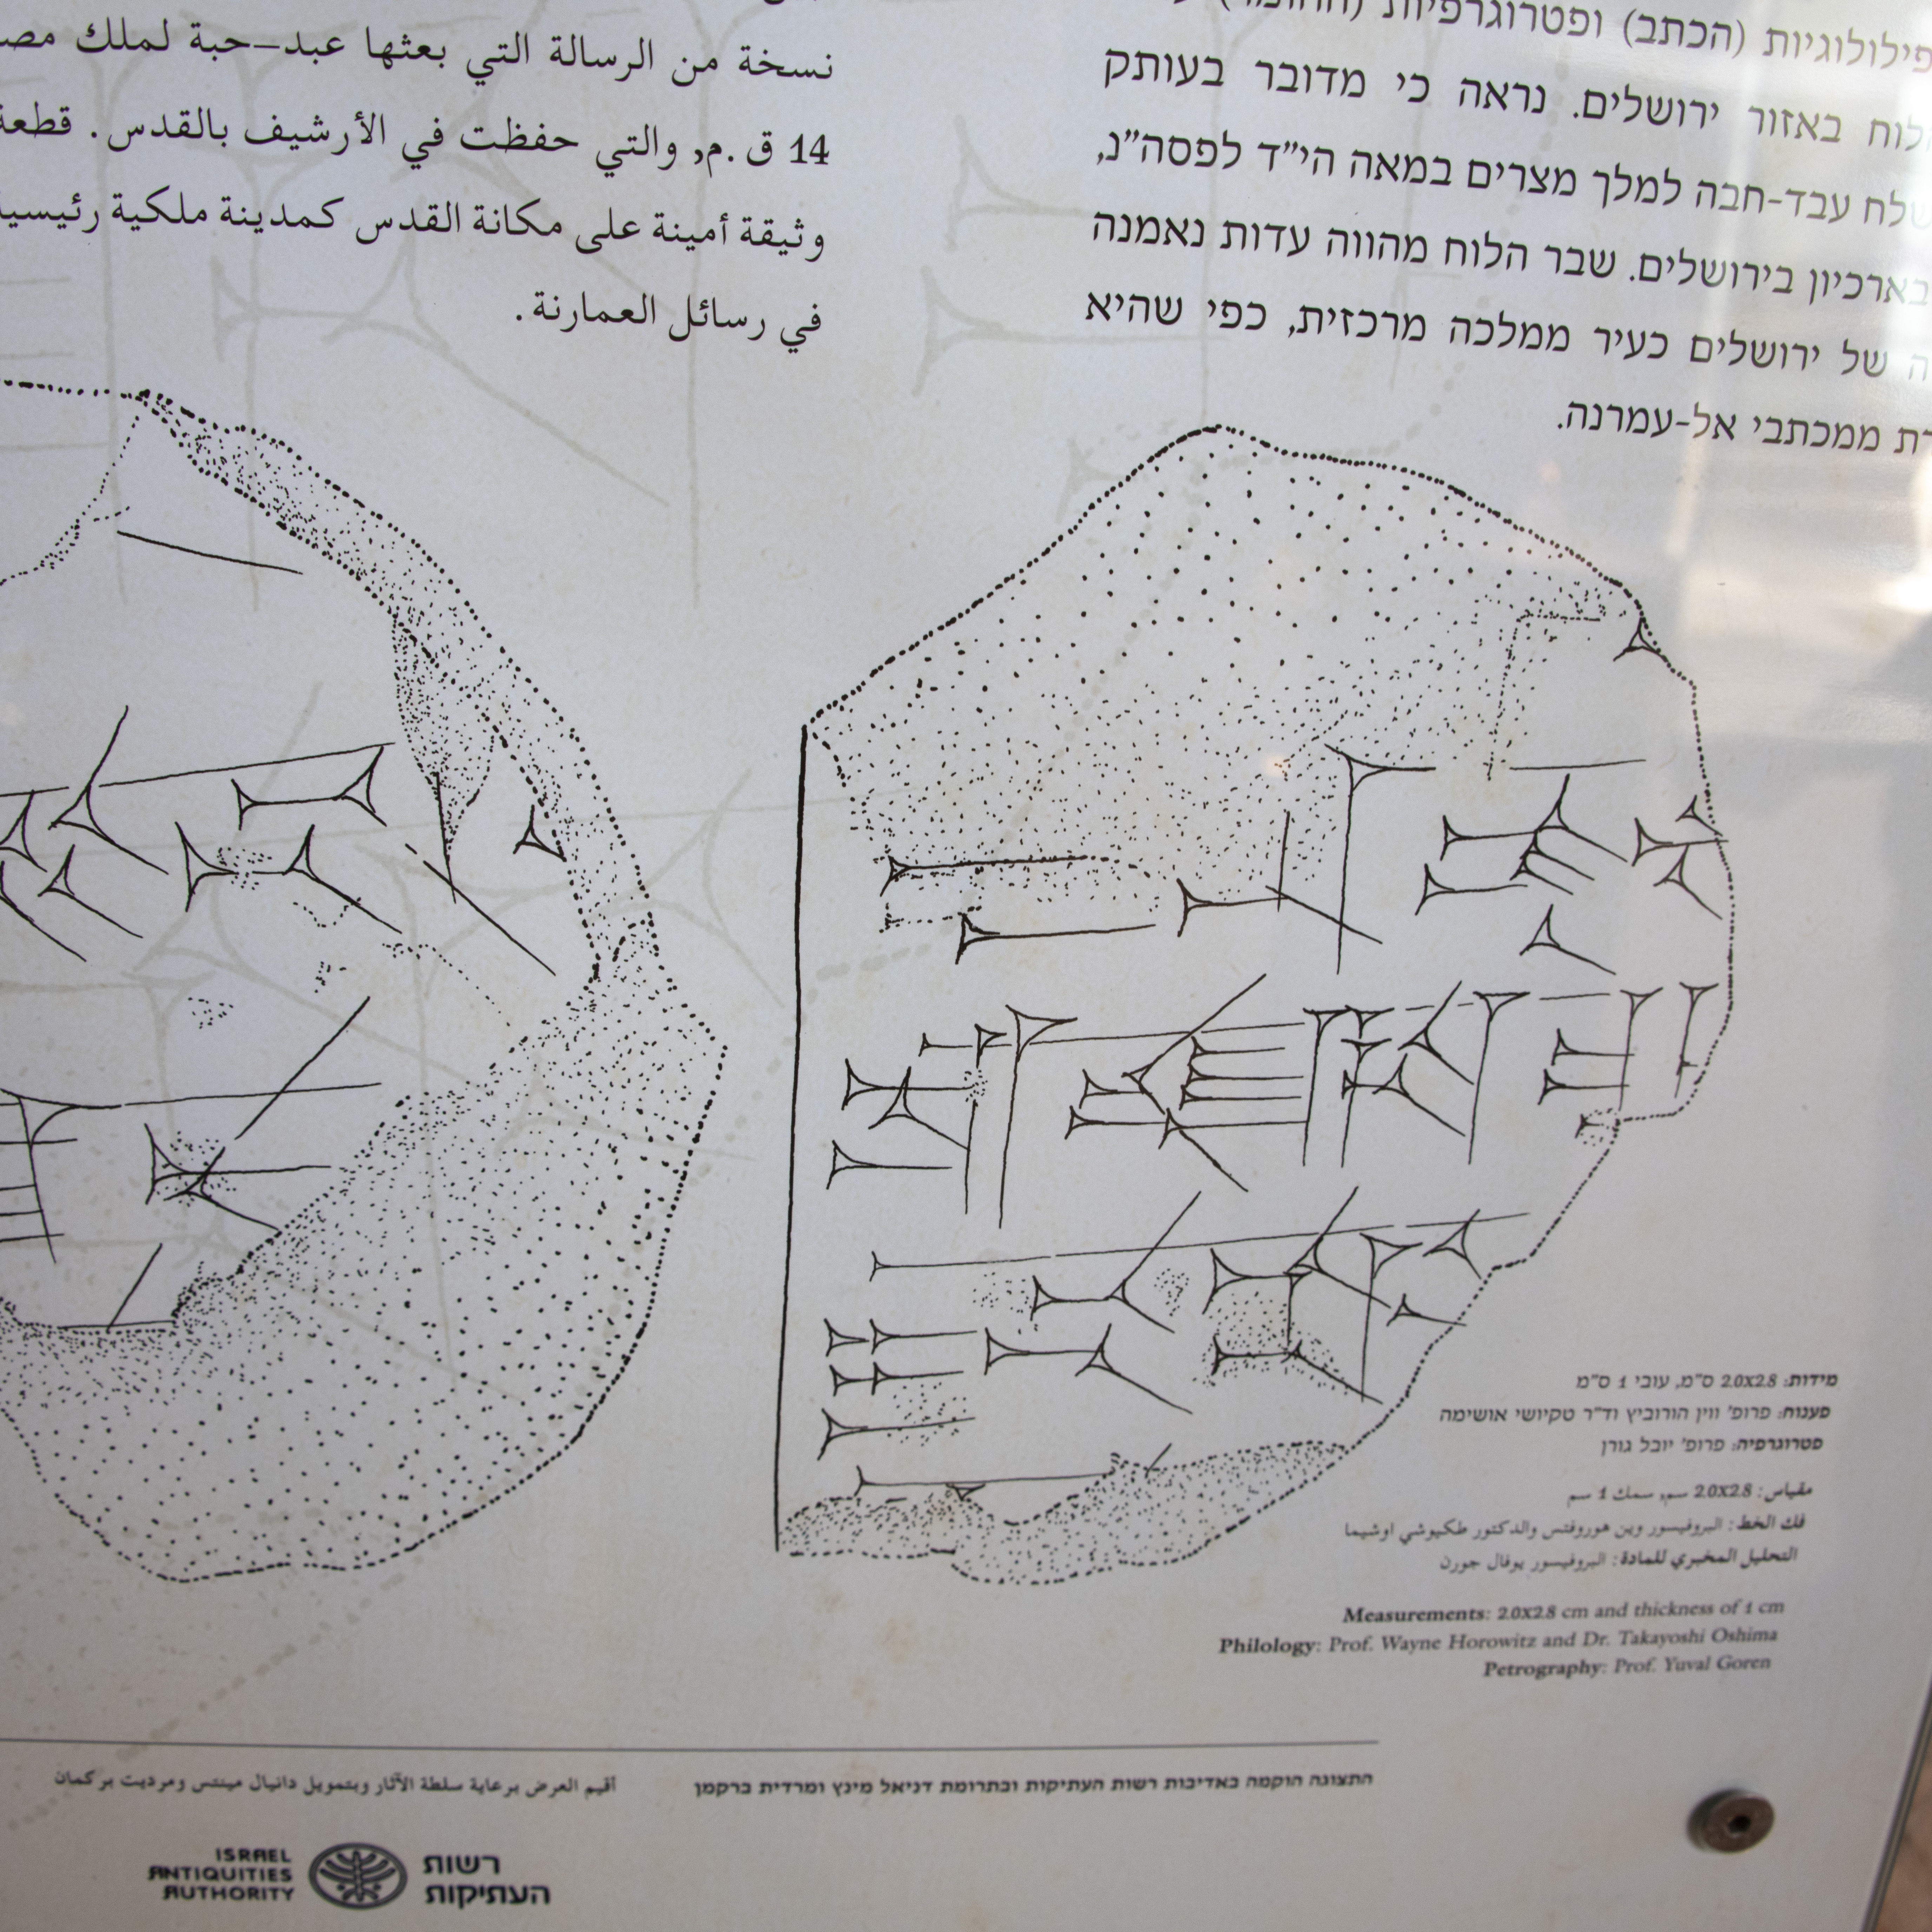 نسخة من الرسالة التي بعثها عبد-حبة لملك
14 ق.م, والتي حفظت في الأرشيف بالقدس. قطعة
وثيقة أمينة على مكانة القدس كمدينة ملكية
في رسائل العمارنة.
(הכתב) ופטרוגרפיות
באזור ירושלים. נראה כי מדובר בעותק
עבד-חבה למלך מצרים במאה הי"ד לפסה"נ,
בארכיון בירושלים. שבר הלוח מהווה עדות נאמנה
של ירושלים כעיר ממלכה מרכזית, כפי שהיא
ממכתבי אל-עמרנה.
מידות: 2.0X2.8 ס"מ, עובי 1 ס"מ
פענוח: פרופ' ווין הורוביץ וד"ר טקיושי אושימה
פטרוגרפיה: פרופ' יובל גורן
مقياس: 2.0X2.8 سم, سمك 1 سم
فك الخط: البروفيسور وين هوروفتس والدكتور طكيوشي اوشيما
التحليل المخبري للمادة: البروفيسور يوفال جورن
Measurements: 2.0X2.8 cm and thickness of 1 cm
Philology: Prof. Wayne Horowitz and Dr. Takayoshi Oshima
Petrography: Prof. Yuval Goren
התצוגה הוקמה באדיבות רשות העתיקות ובתרומת דניאל מינץ ומרדית ברקמן
أقيم العرض برعاية سلطة الآثار وبتمويل دانيال مينتس ومرديت بركمان
ISRAEL
ANTIQUITIES
AUTHORITY
רשות
העתיקות